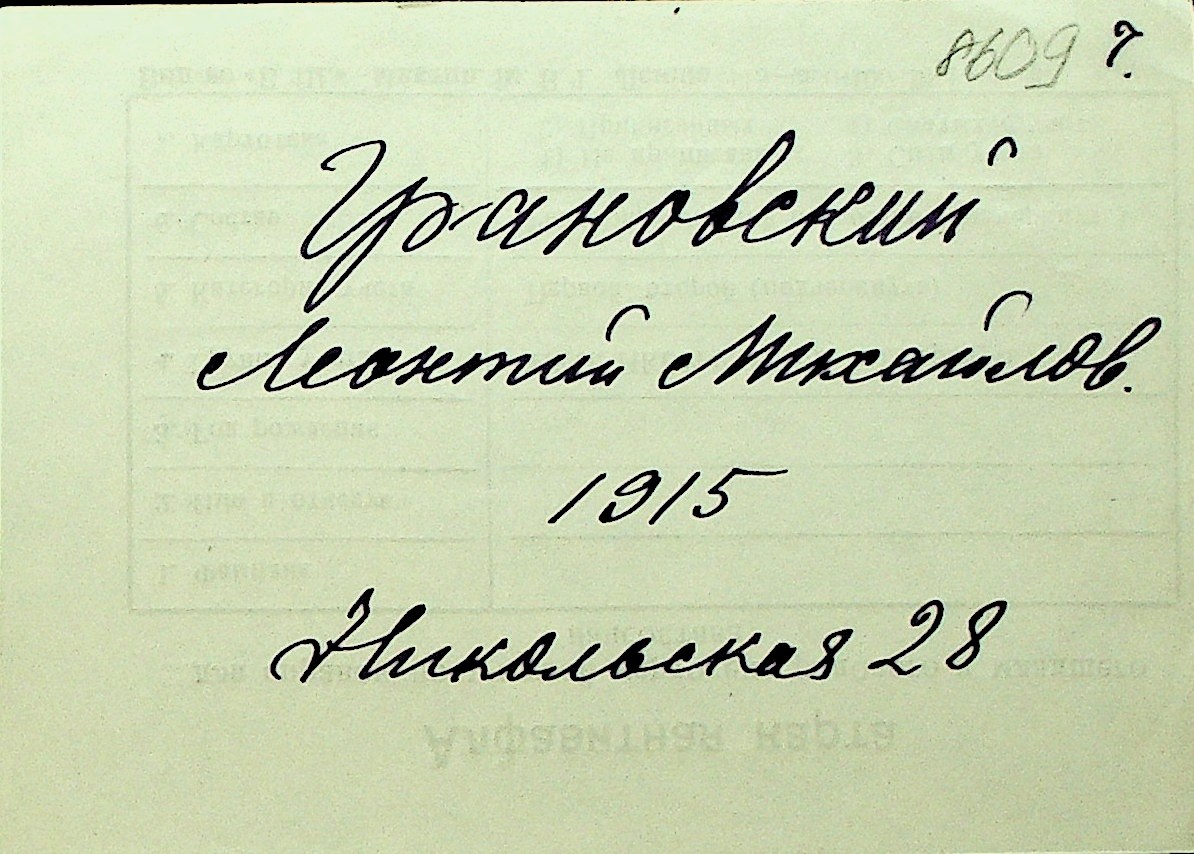 8609 г.
Грановский
Леонтий Михайлов.
1915
Никольская 28